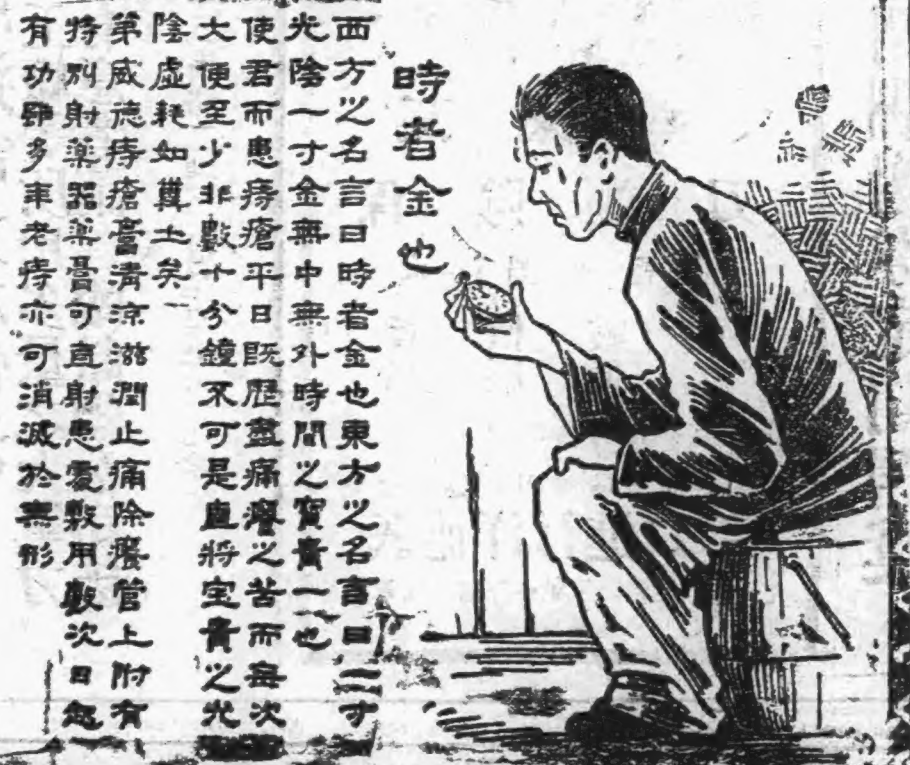 時者金也
西方之名言曰時者金也東方之名言曰一寸
光陰一寸金無中無外時間之寶貴一也
使君而患痔瘡平日既歷盡痛癢之苦而每次
大便至少非數十分鐘不可是直將宝貴之光
陰虛耗如糞土矣
第威德痔瘡膏清涼滋潤止痛除癢管上附有
特別射藥器藥膏可直射患處敷用數次日愈
有功雖多年老痔亦可消滅於無形